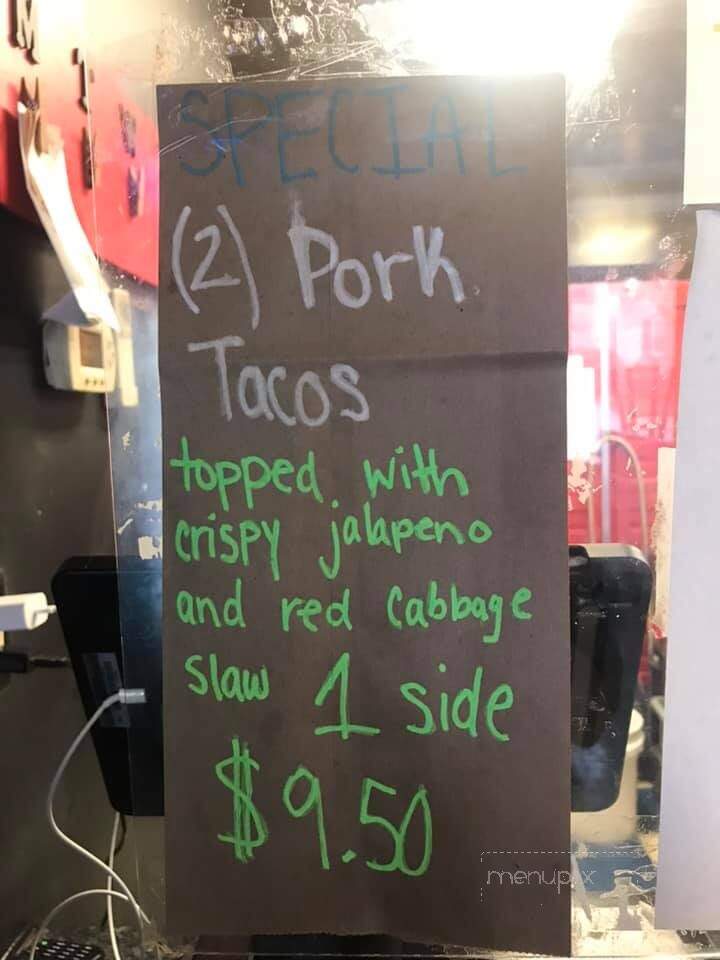 SPECIAL
(2) Pork
Tacos
topped with
crispy jalapeno
and red cabbage
slaw 1 side
$9.50
menupix